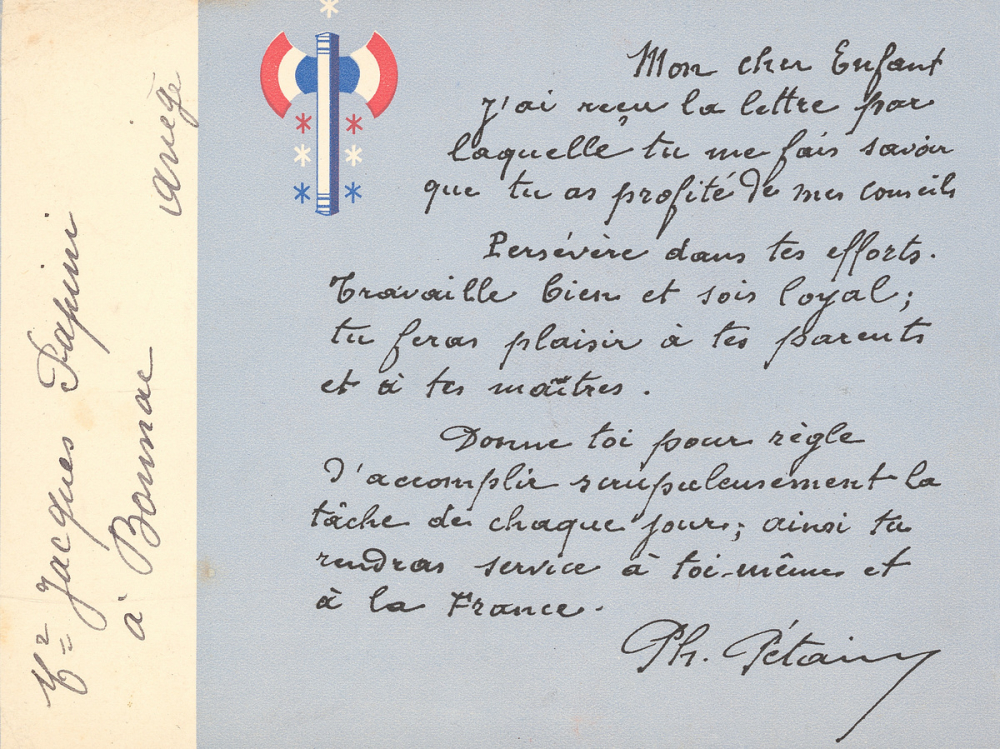 Mon cher Enfant
j'ai reçu la lettre par
laquelle tu me fais savoir
que tu as profité de mes conseils
Persévère dans tes efforts.
Travaille bien et sois loyal;
tu feras plaisir à tes parents
et à tes maîtres.
Donne toi pour règle
d'accomplir scrupuleusement la
tâche de chaque jour; ainsi tu
rendras service à toi-même et
à la France.
Ph. Pétain
Mr Jacques Papini
à Bonnac
Ariège